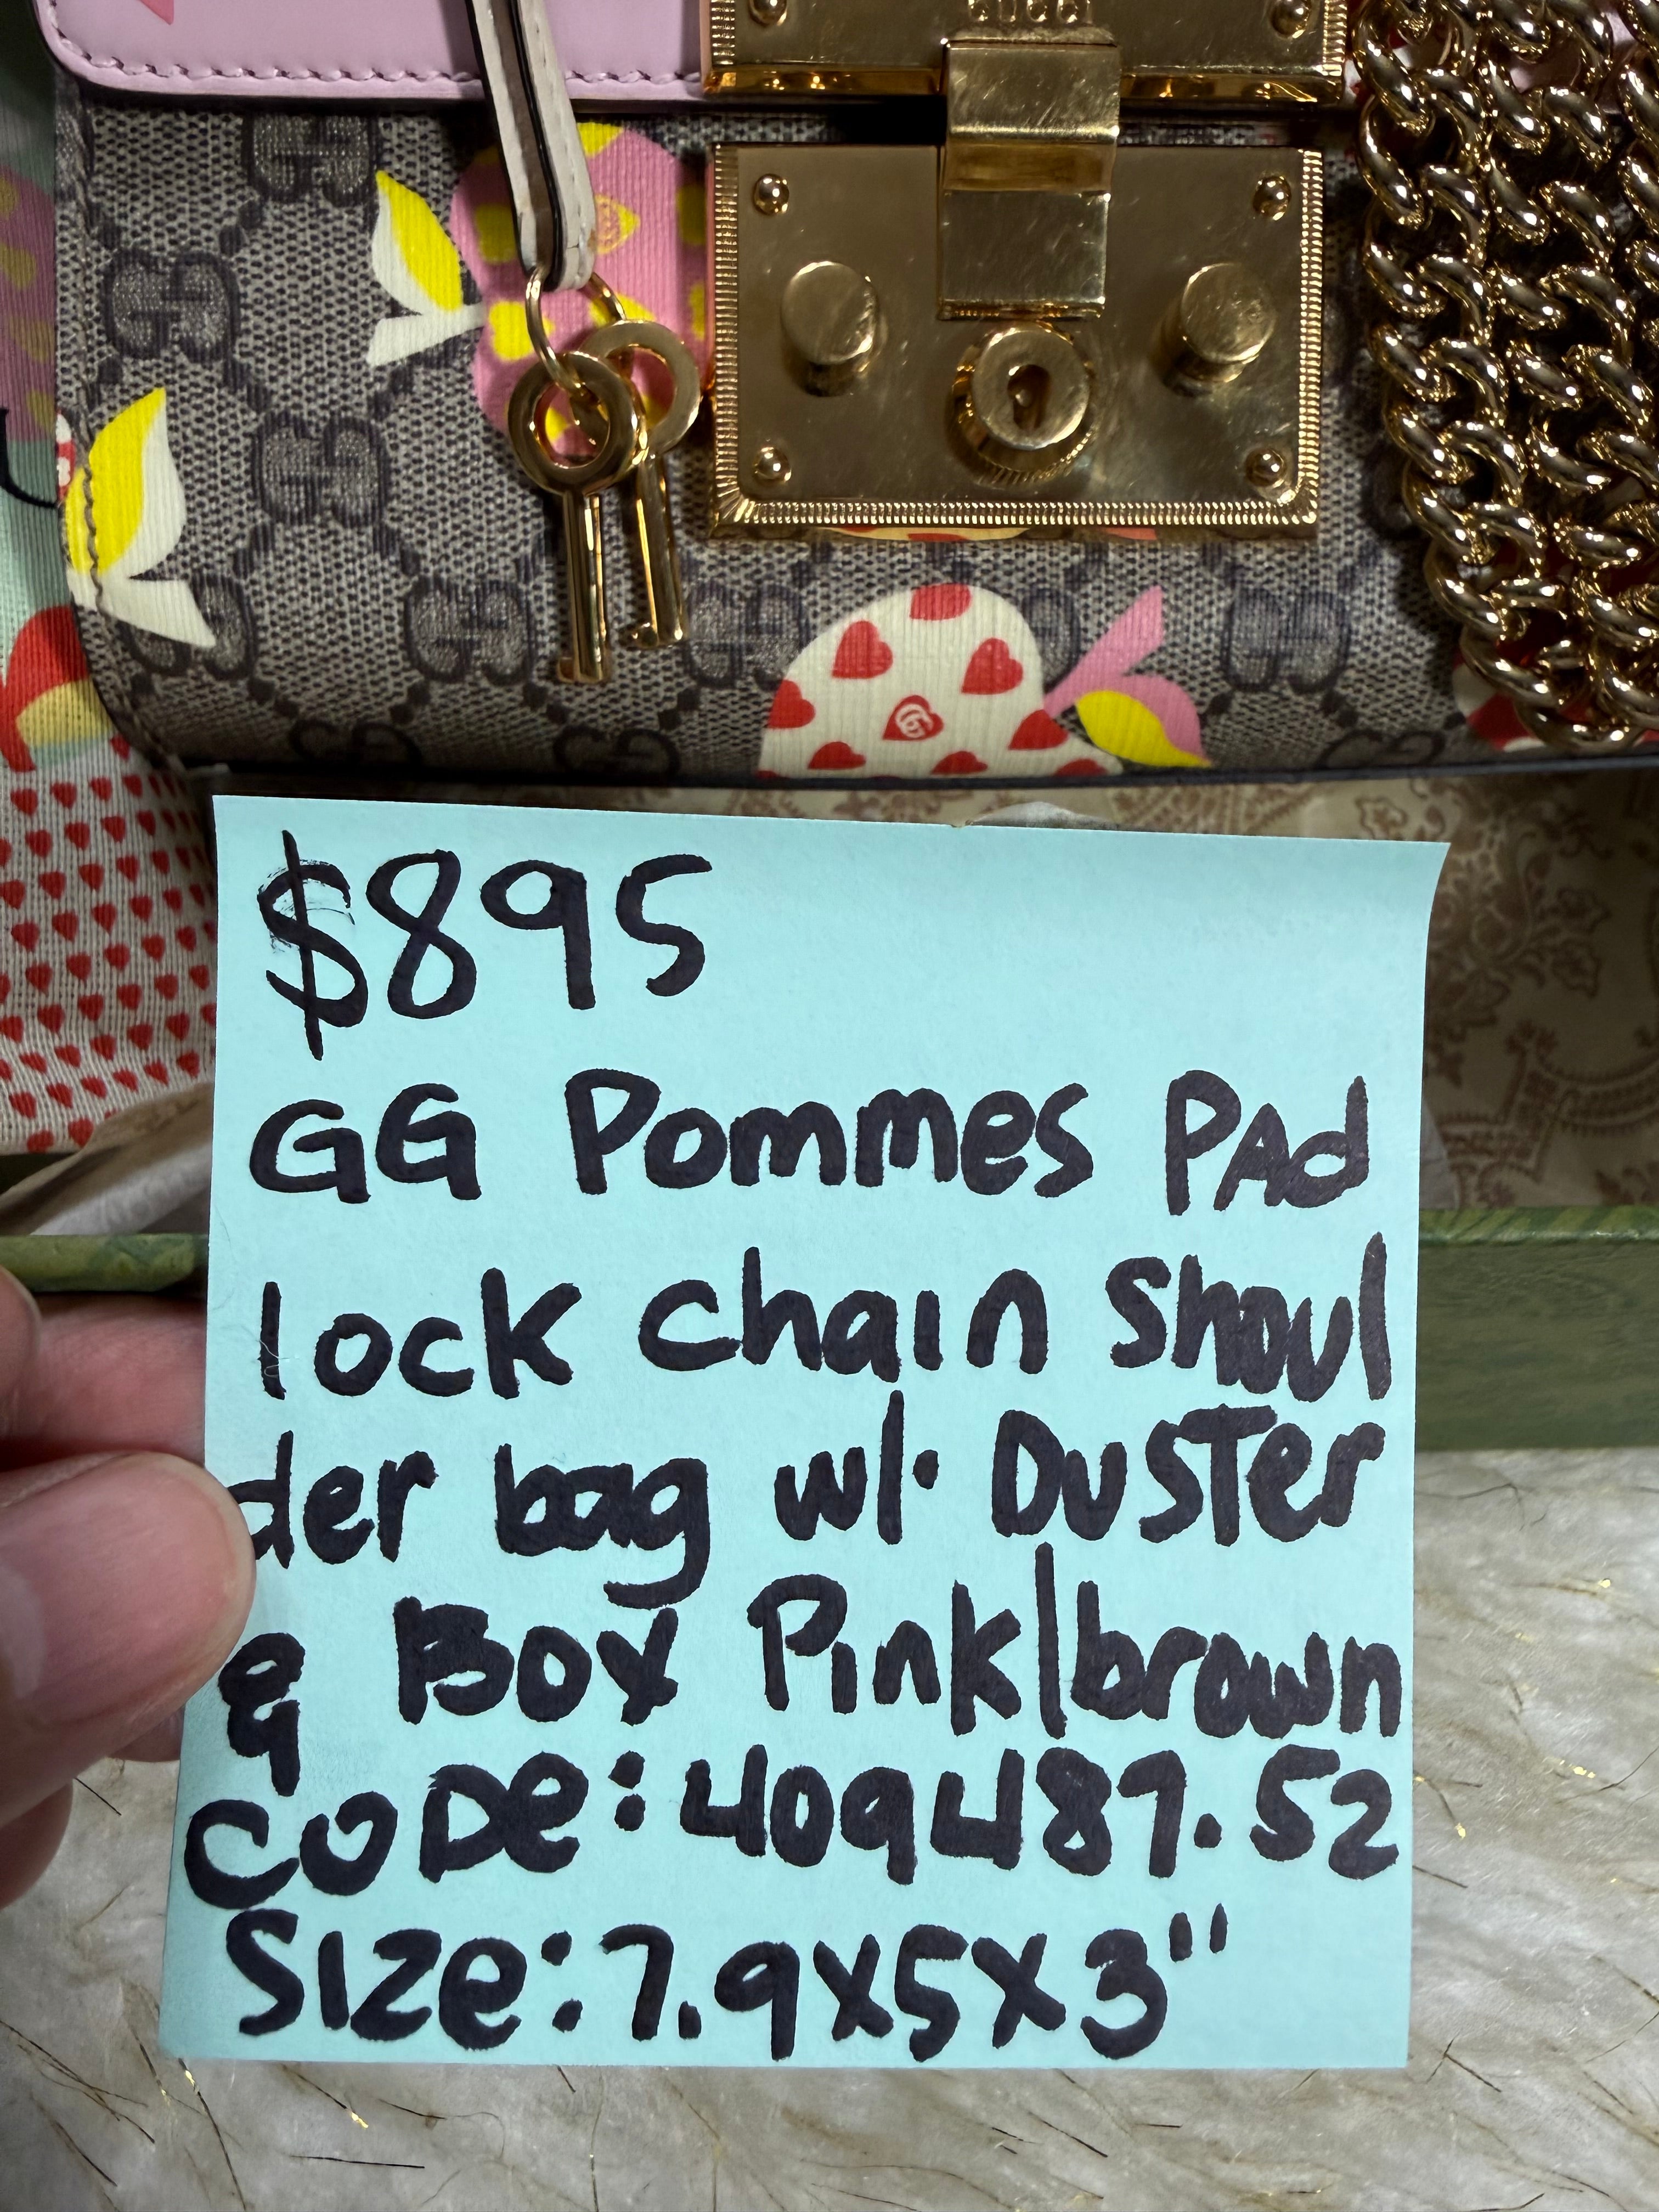 GUCCI
$895
GG Pommes PAd
lock chain shoul
der bag w/. Duster
& Box Pink/brown
CODe: 409487.52
Size: 7.9x5x3"